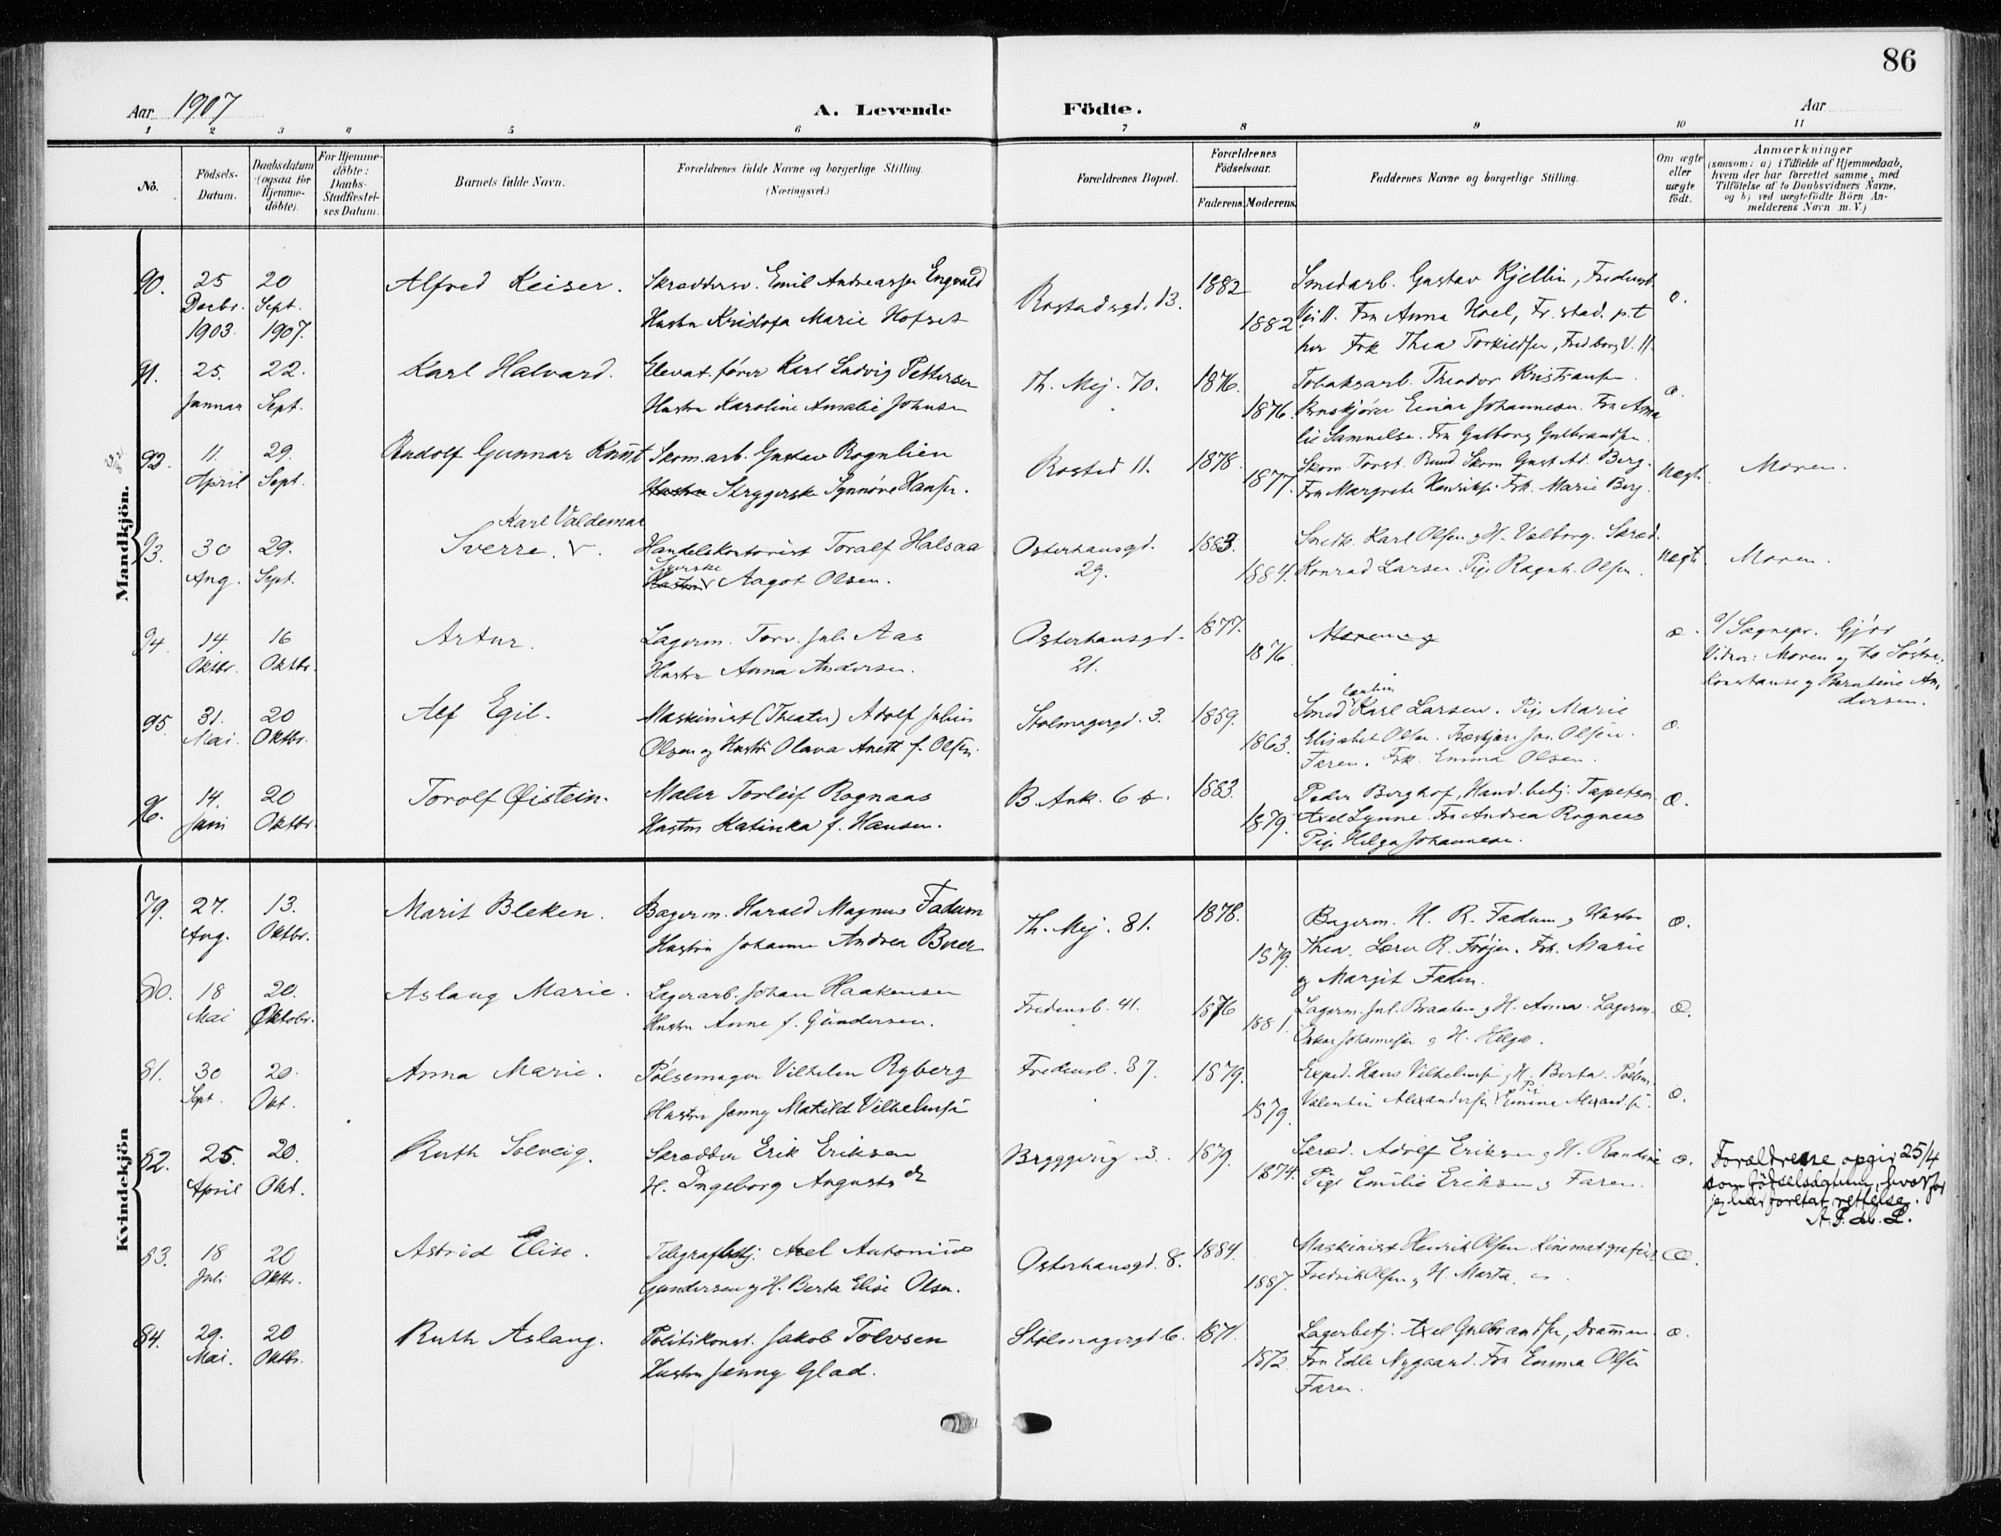 86
Aar 1907
A. Levende Födte.
Aar
1 2 3 4 5 6 7 8 9 10 11
No.
Födsels-Datum.
Daabsdatum (ogsaa for Hjemme-döbte).
For Hjemme-döbte: Daabs-Stadfæstel-ses Datum.
Barnets fulde Navn.
Forældrenes fulde Navne og borgerlige Stilling. (Næringsvei.)
Forældrenes Bopæl.
Forældrenes Födselsaar.
Faderens. Moderens.
Faddernes Navne og borgerlige Stilling.
Om ægte eller uægte födt.
Anmærkninger
(saasom: a) i Tilfælde af Hjemmedaab, hvem der har forrettet samme, med Tilföielse af to Daabsvidners Navne, og b) ved uægtefödte Börn An-melderens Navn m. V.)
Mandkjön.
90. 25 Decbr. 1903. 20 Sept. 1907. Alfred Keiser. Skræddersv. Emil Andreassen Engvald
Hustru Kristofa Marie Hofset
Rostadsgd. 13. 1882 1882
Smedarb. Gustav Kjellin, Fredensb.
Vei 11. Fru Anna Hoel, Fr.stad. p.t
her Frk Thea Torkildsen, Fredborg V. 11.
æ.
91. 25. Januar 22. Sept. Karl Halvard. Elevatfører Karl Ludvig Pettersen
Hustru Karoline Amalie Johnsen
Th. Mej. 70. 1876. 1876.
Tobaksarb. Theodor Kristiansen.
Einar Johannesen. Fru Ama
lie Samuelsen. Fru Gulborg Gulbrandsen.
æ.
92. 11. April 29. Sept. Rudolf Gunnar Knut Skom.arb. Gustav Rognlien
Hustru Strygerske Synnøve Hansen.
Rosted 11. 1878. 1877.
Skom. Torst. Rund Skom Gust. Ad. Berg.
Fru Margrete Henriks. Frk. Marie Berg.
Uægt. Moren.
93. 30 Aug. 29. Sept. Karl Valdemar
Sverre. V. Handelskontorist Toralf Halsaa
Hustru Aagot Olsen.
Osterhausgd. 29. 1883. 1884.
Smedk. Karl Olsen og H. Valborg. Skræd.
Konrad Larsen. Pige Ragnh. Olsen.
Uægt. Moren.
94. 14. Oktbr. 16 Oktbr. Artur. Lagerm. Torv. Juli Aas
Hustru Anna Andersen.
Osterhausgd. 21. 1877. 1876.
Moren og
æ. v/ Sognepr. Gjør
Vidner: Moren og to Søstre.
Konstanse og Berntine An-
dersen.
95. 31. Mai. 20 Oktbr. Alf Egil. Maskinist (Theater) Adolf Julius
Olsen og Hustru Olava Anette f. Olsen.
Stolmagergd. 3. 1859. 1863.
Smed Karl Larsen. Pige Marie
Elisabet Olsen. Joh. Olsen.
Faren. Frk. Emma Olsen.
æ.
96. 14. Juni 20 Oktbr. Torolf Øistein. Maler Torleif Rognaas
Hustru Katinka f. Hansen.
B. Ank. 6 b. 1883. 1879.
Peder Berghof, Hand.betj. Tapetser
Axel Lynne. Fru Andrea Rognaas
Pige Helga Johannesen.
æ.
Kvindekjön
79. 27. Aug. 13. Oktbr. Marit Bleken. Bagerm. Harald Magnus Fadum
Hustru Johanne Andrea Buer
Th. Mej. 81. 1878. 1879.
Bagerm. H. R. Fadum og Hustru
Thea. Lærer R. Frøjer. Frk. Marie
og Margit Fadum.
æ.
80. 18 Mai 20. Oktobr. Aslaug Marie. Lagerarb. Johan Haakensen
Hustru Anne f. Gundersen.
Fredensb. 41. 1876 1881.
Lagerm. Jul. Braaten og H. Anna. Lagerm.
Oskar Johannesen og H. Helga.
æ.
81. 30 Sept. 20. Okt. Anna Marie. Pølsemager Vilhelm Ryberg
Hustru Jenny Matild Vilhelmsen
Fredensb. 37. 1879. 1879.
Exped. Hans Vilhelmsen og H. Berta. Pølsem.
Valentin Alexandersen Pige Emma Alexands.
æ.
82. 25. April 20. Okt. Ruth Solveig. Skrædder Erik Eriksen
H. Ingeborg Augusta
Bryggerig. 3. 1879. 1874.
Skræd. Adolf Eriksen og H. Randine
Pige Emilie Eriksen og Faren.
æ. Forældrene opgir 25/4
som fødselsdatum, hvorfor
jeg har foretat rettelse.
83. 18 Juli 20 Oktbr. Astrid Elise. Telegrafbetj. Axel Antonius
Gundersen og H. Berta Elise Olsen.
Osterhausgd. 8. 1884. 1887.
Maskinist Henrik Olsen. Kinematografeier
Fredrik Olsen og H. Marta.
æ.
84. 29. Mai. 20 Oktbr. Ruth Aslaug. Politikonst. Jakob Tolvsen
Hustru Jenny Glad.
Stolmagergd 6. 1871. 1872.
Lagerbetj. Axel Gulbrandsen, Drammen.
Fru Edle Nygaard. Fru Emma Olsen
Faren.
æ.